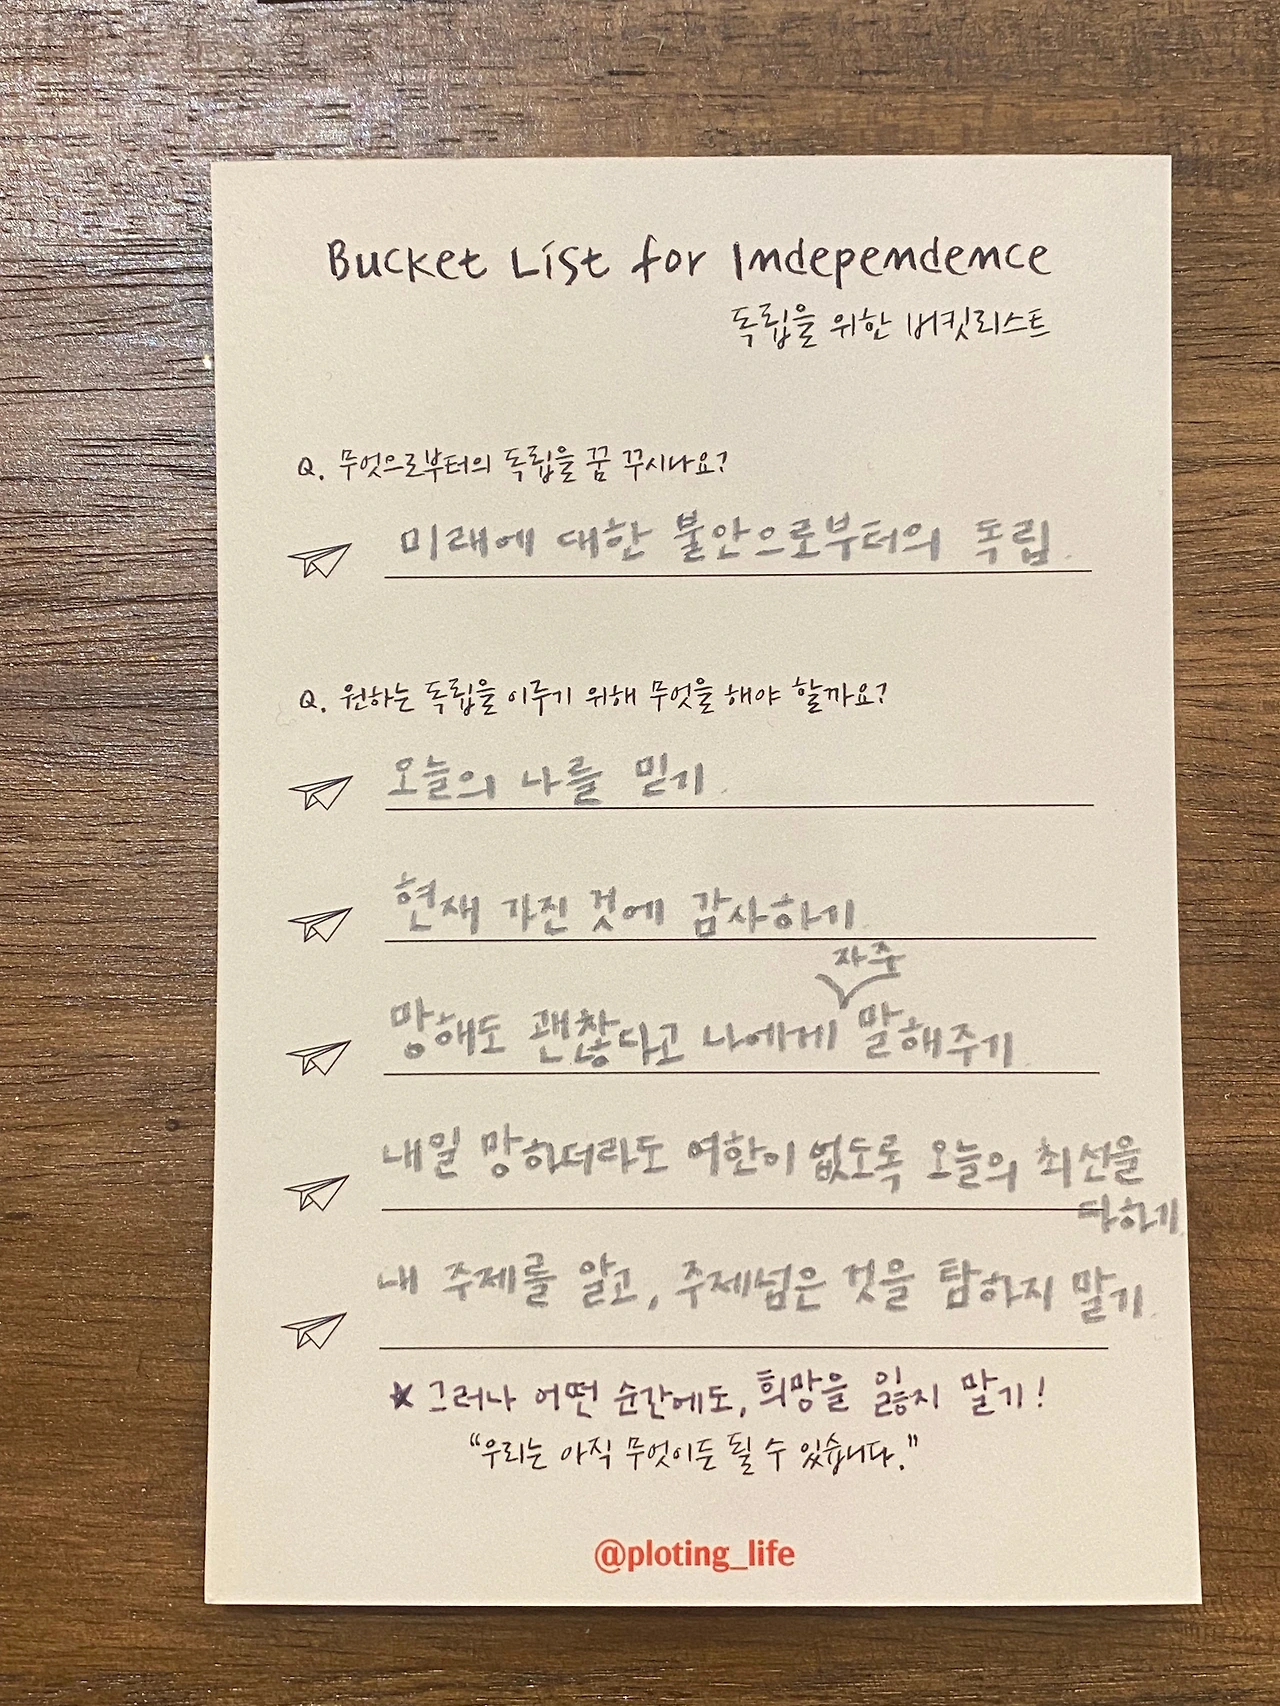 Bucket List for Independence
독립을 위한 버킷리스트
Q. 무엇으로부터의 독립을 꿈 꾸시나요?
미래에 대한 불안으로부터의 독립.
Q. 원하는 독립을 이루기 위해 무엇을 해야 할까요?
오늘의 나를 믿기.
현재 가진 것에 감사하기.
자주
망해도 괜찮다고 나에게 말해주기.
내일 망하더라도 여한이 없도록 오늘의 최선을
다하기.
내 주제를 알고, 주제넘은 것을 탐하지 말기.
★ 그러나 어떤 순간에도, 희망을 잃지 말기!
“우리는 아직 무엇이든 될 수 있습니다.”
@ploting_life